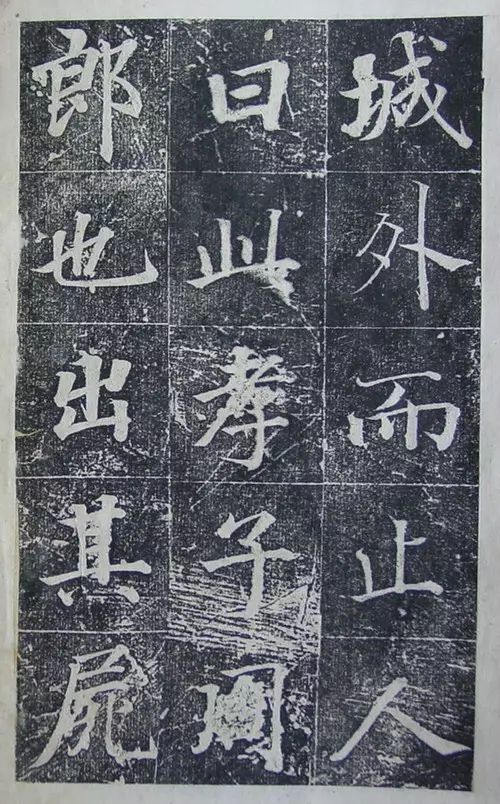 城外而止人
曰此孝子周
郎也出其屍